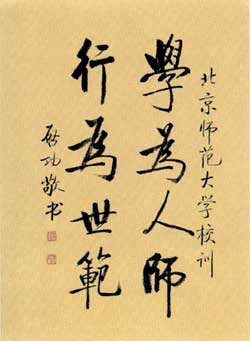 北京师范大学校训
學為人師
行為世範
啟功敬书